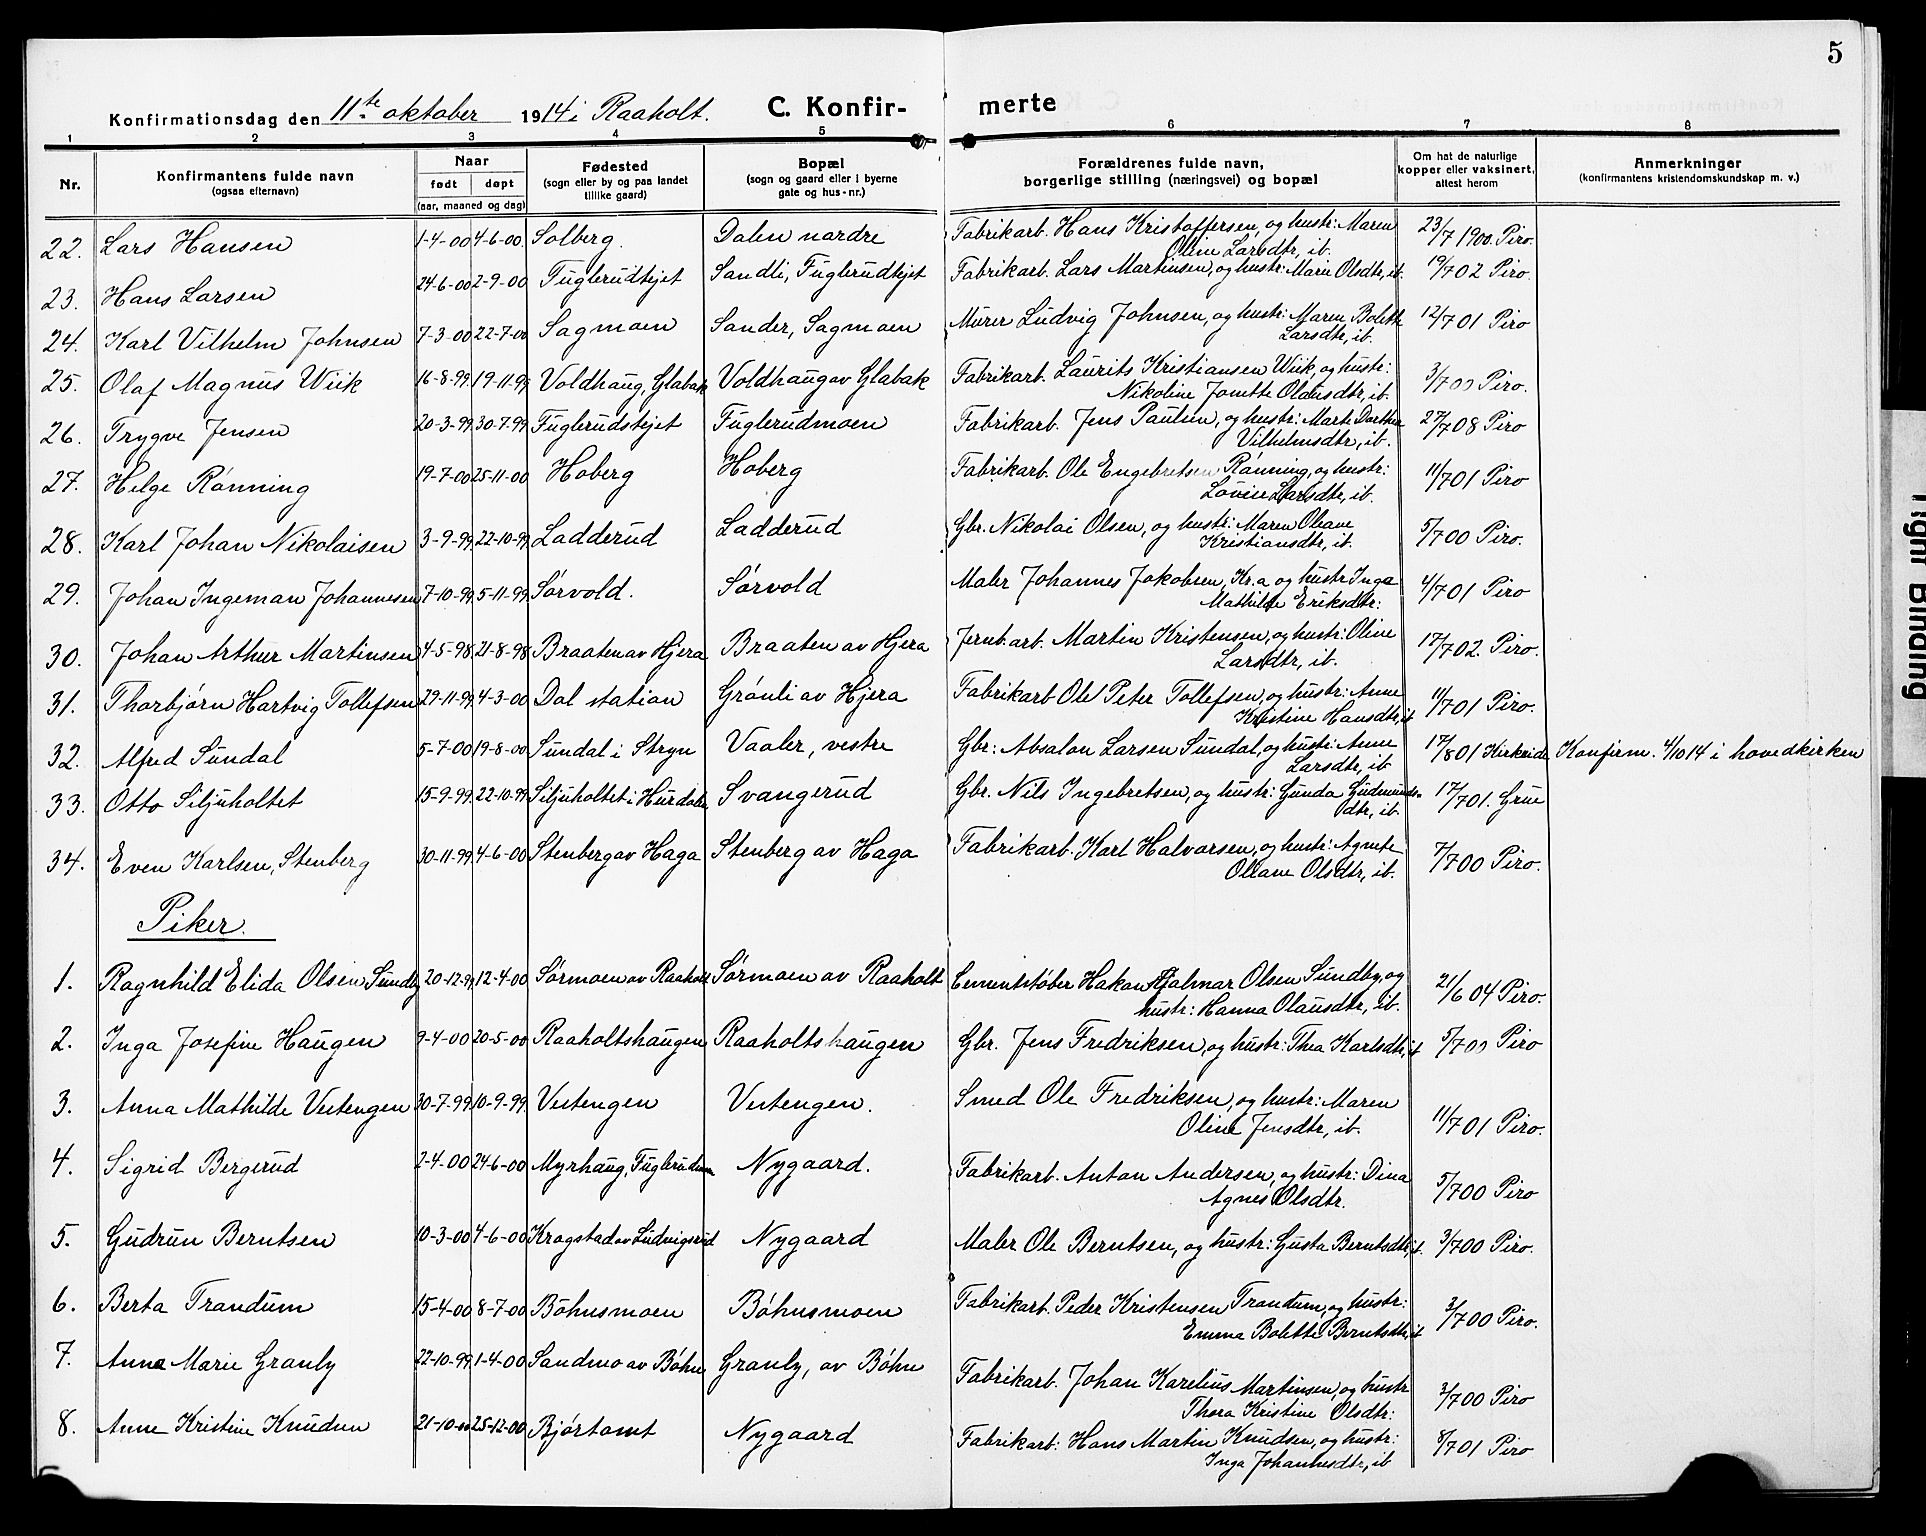 5
Konfirmationsdag den 11te oktober 1914 i Raaholt. C. Konfir- merte
1 2 3 4 5 6 7 8
Nr. Konfirmantens fulde navn (ogsaa efternavn) Naar født døpt (aar, maaned og dag) Fødested (sogn eller by og paa landet tillike gaard) Bopæl (sogn og gaard eller i byerne gate og hus-nr.) Forældrenes fulde navn, borgerlige stilling (næringsvei) og bopæl Om hat de naturlige kopper eller vaksinert, attest herom Anmerkninger (konfirmantens kristendomskundskap m. v.)
22. Lars Hansen 1-4-00 4-6-00. Solberg. Dalen nordre Fabrikarb. Hans Kristoffersen, og hustr: Maren
Oline Larsdtr, ib. 23/7 1900. Piro.
23. Hans Larsen 24-6-00 2-9-00 Fuglerudejet Sandli, Fuglerudejet Fabrikarb. Lars Martinsen, og hustr: Marie Olsdtr, ib. 19/702 Piro.
24. Karl Vilhelm Johnsen 7-3-00 22-7-00 Sagmoen Sander, Sagmoen Murer Ludvig Johnsen, og hustr: Maren Bolette
Larsdtr, ib. 12/701 Piro
25. Olaf Magnus Wiik 16-8-99. 19-11-99 Voldhaug, Glabak Voldhaug av Glabak Fabrikarb. Laurits Kristiansen Wiik, og hustr:
Nikoline Jonette Olausdtr, ib. 3/700 Piro.
26. Trygve Jensen 20-3-99. 30-7-99 Fuglerudsejet Fuglerudmoen Fabrikarb. Jens Paulsen, og hustr: Marte Dorthea
Vilhelmsdtr, ib. 27/708 Piro
27. Helge Rønning 19-7-00 25-11-00 Hoberg Hoberg Fabrikarb. Ole Engebretsen Rønning, og hustr:
Lovise Larsdtr, ib. 11/701 Piro
28. Karl Johan Nikolaisen 3-9-99. 22-10-99 Ladderud Ladderud Gbr. Nikolai Olsen, og hustr: Maren Oleane
Kristiansdtr, ib. 5/700 Piro.
29. Johan Ingeman Johannesen 7-10-99. 5-11-99. Sørvold. Sørvold Maler Johannes Jakobsen, Kr.a og hustr Inga
Mathilde Eriksdtr: 4/701 Piro
30. Johan Arthur Martinsen 4-5-98. 21-8-98 Braaten av Hjera Braaten av Hjera Jernb. arb. Martin Kristensen, og hustr: Oline
Larsdtr, ib. 17/702. Piro.
31. Thorbjørn Hartvig Tollefsen 29-11-99. 4-3-00 Dal station Grønli av Hjera Fabrikarb Ole Peter Tollefsen, og hustr: Anne
Kristine Hansdtr, ib 11/701 Piro.
32. Alfred Sundal 5-7-00 19-8-00 Sundal i Stryn Vaaler, vestre Gbr: Absalon Larsen Sundal, og hustr: Anne
Larsdtr, ib 17/801 Kirkeide Konfirm. 4/10 14 i hovedkirken
33. Otto Siljuholtet 15-9-99. 22-10-99 Siljuholtet i Hurdalen Svangerud Gbr. Nils Ingebretsen, og hustr: Gunda Gudmunds-
dtr, ib. 17/701. Grue
34. Even Karlsen, Stenberg 30-11-99. 4-6-00 Stenberg av Haga Stenberg av Haga Fabrikarb. Karl Halvorsen, og hustr: Agnete
Oleane Olsdtr, ib. 7/700 Piro.
Piker.
1. Ragnhild Elida Olsen Sundby 20-12-99 12-4-00 Sørmoen av Raaholt Sørmoen av Raaholt Cementstøber Hakon Hjalmar Olsen Sundby, og
hustr: Hanna Olausdtr, ib. 21/6 04 Piro.
2. Inga Josefine Haugen 9-4-00 20-5-00 Raaholtshaugen Raaholtshaugen Gbr. Jens Fredriksen, og hustr: Thea Karlsdtr, ib 5/700 Piro
3. Anna Mathilde Vestengen 30-7-99. 10-9-99. Vestengen Vestengen. Smed Ole Fredriksen, og hustr: Maren
Oline Jensdtr, ib. 11/701 Piro.
4. Sigrid Bergerud 2-4-00 24-6-00 Myrhaug, Fuglerudm Nygaard. Fabrikarb. Anton Andersen, og hustr: Dina
Agnes Olsdtr. 5/700 Piro
5. Gudrun Berntsen 10-3-00 4-6-00 Krogstad av Ludvigsrud Nygaard Maler Ole Berntsen, og hustr: Gusta Berntsdtr, ib. 3/700 Piro.
6. Berta Trandum 15-4-00 8-7-00 Bøhnsmoen Bøhnsmoen Fabrikarb. Peder Kristensen Trandum, og hustr:
Emma Bolette Berntsdtr, ib 3/700 Piro.
7. Anna Marie Granly 22-10-99. 1-4-00 Sandmo av Bøhn Granly, av Bøhn Fabrikarb. Johan Karelius Martinsen, og hustr
Thora Kristine Olsdtr: 3/700 Piro
8. Anne Kristine Knudsen 21-10-00 25-12-00 Bjørtomt Nygaard Fabrikarb: Hans Martin Knudsen, og hustr:
Inga Johannesdtr, ib 8/701 Piro
Tight Binding